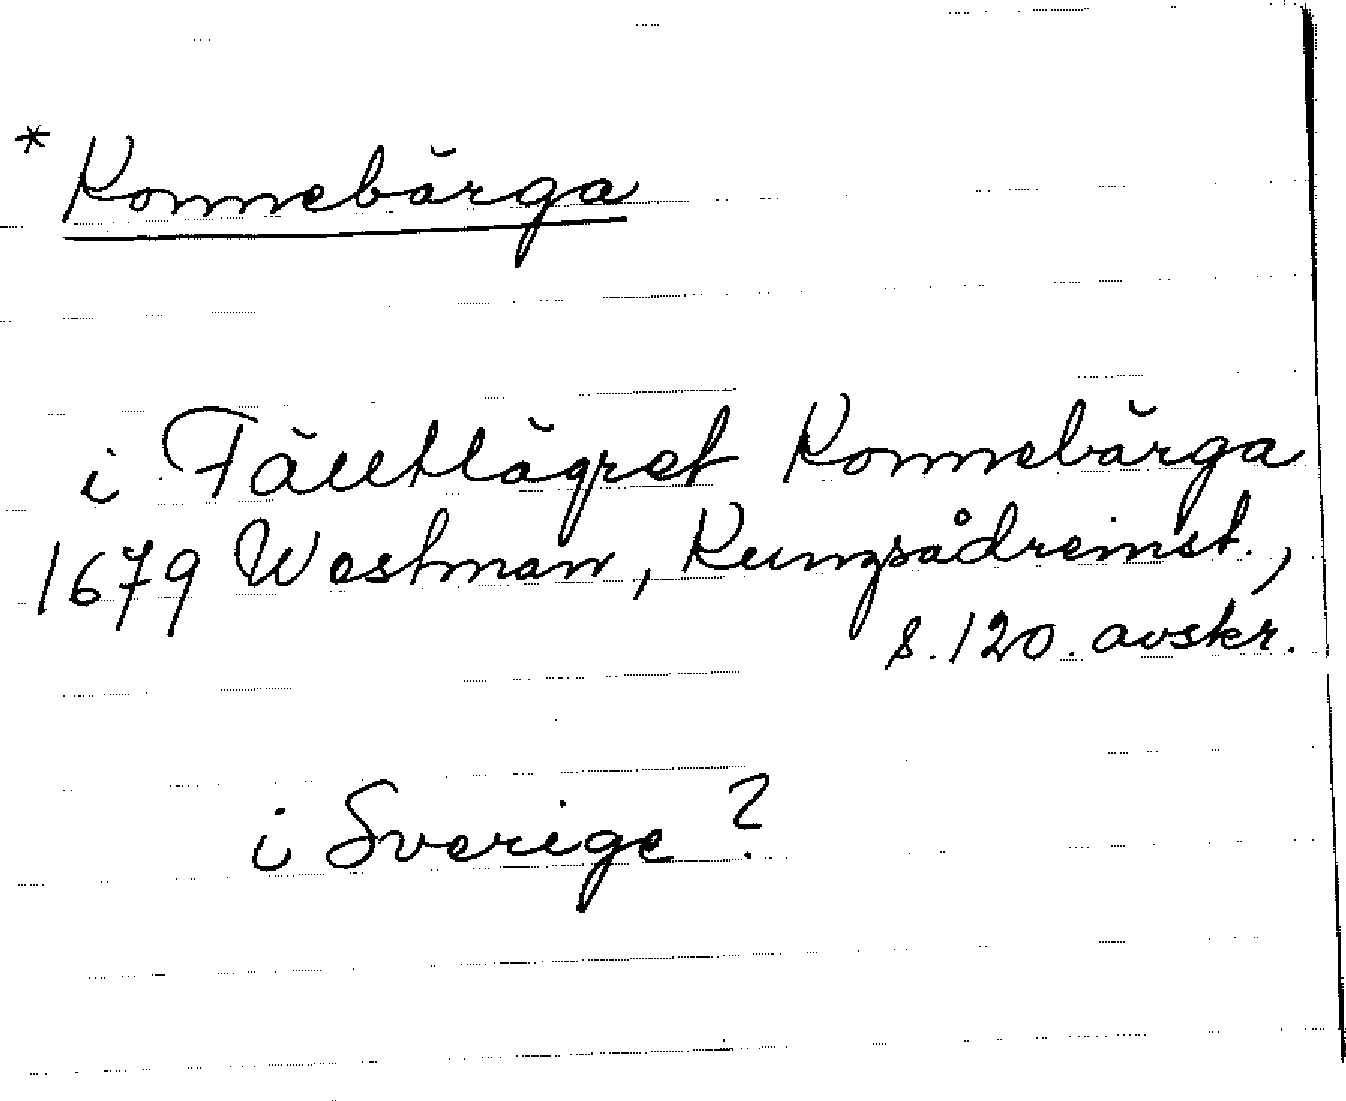 * Konnebärga
i Fälltlägret Konnebärga
1679 Westman, Kungsådreinst.,
s. 120. avskr.
i Sverige?